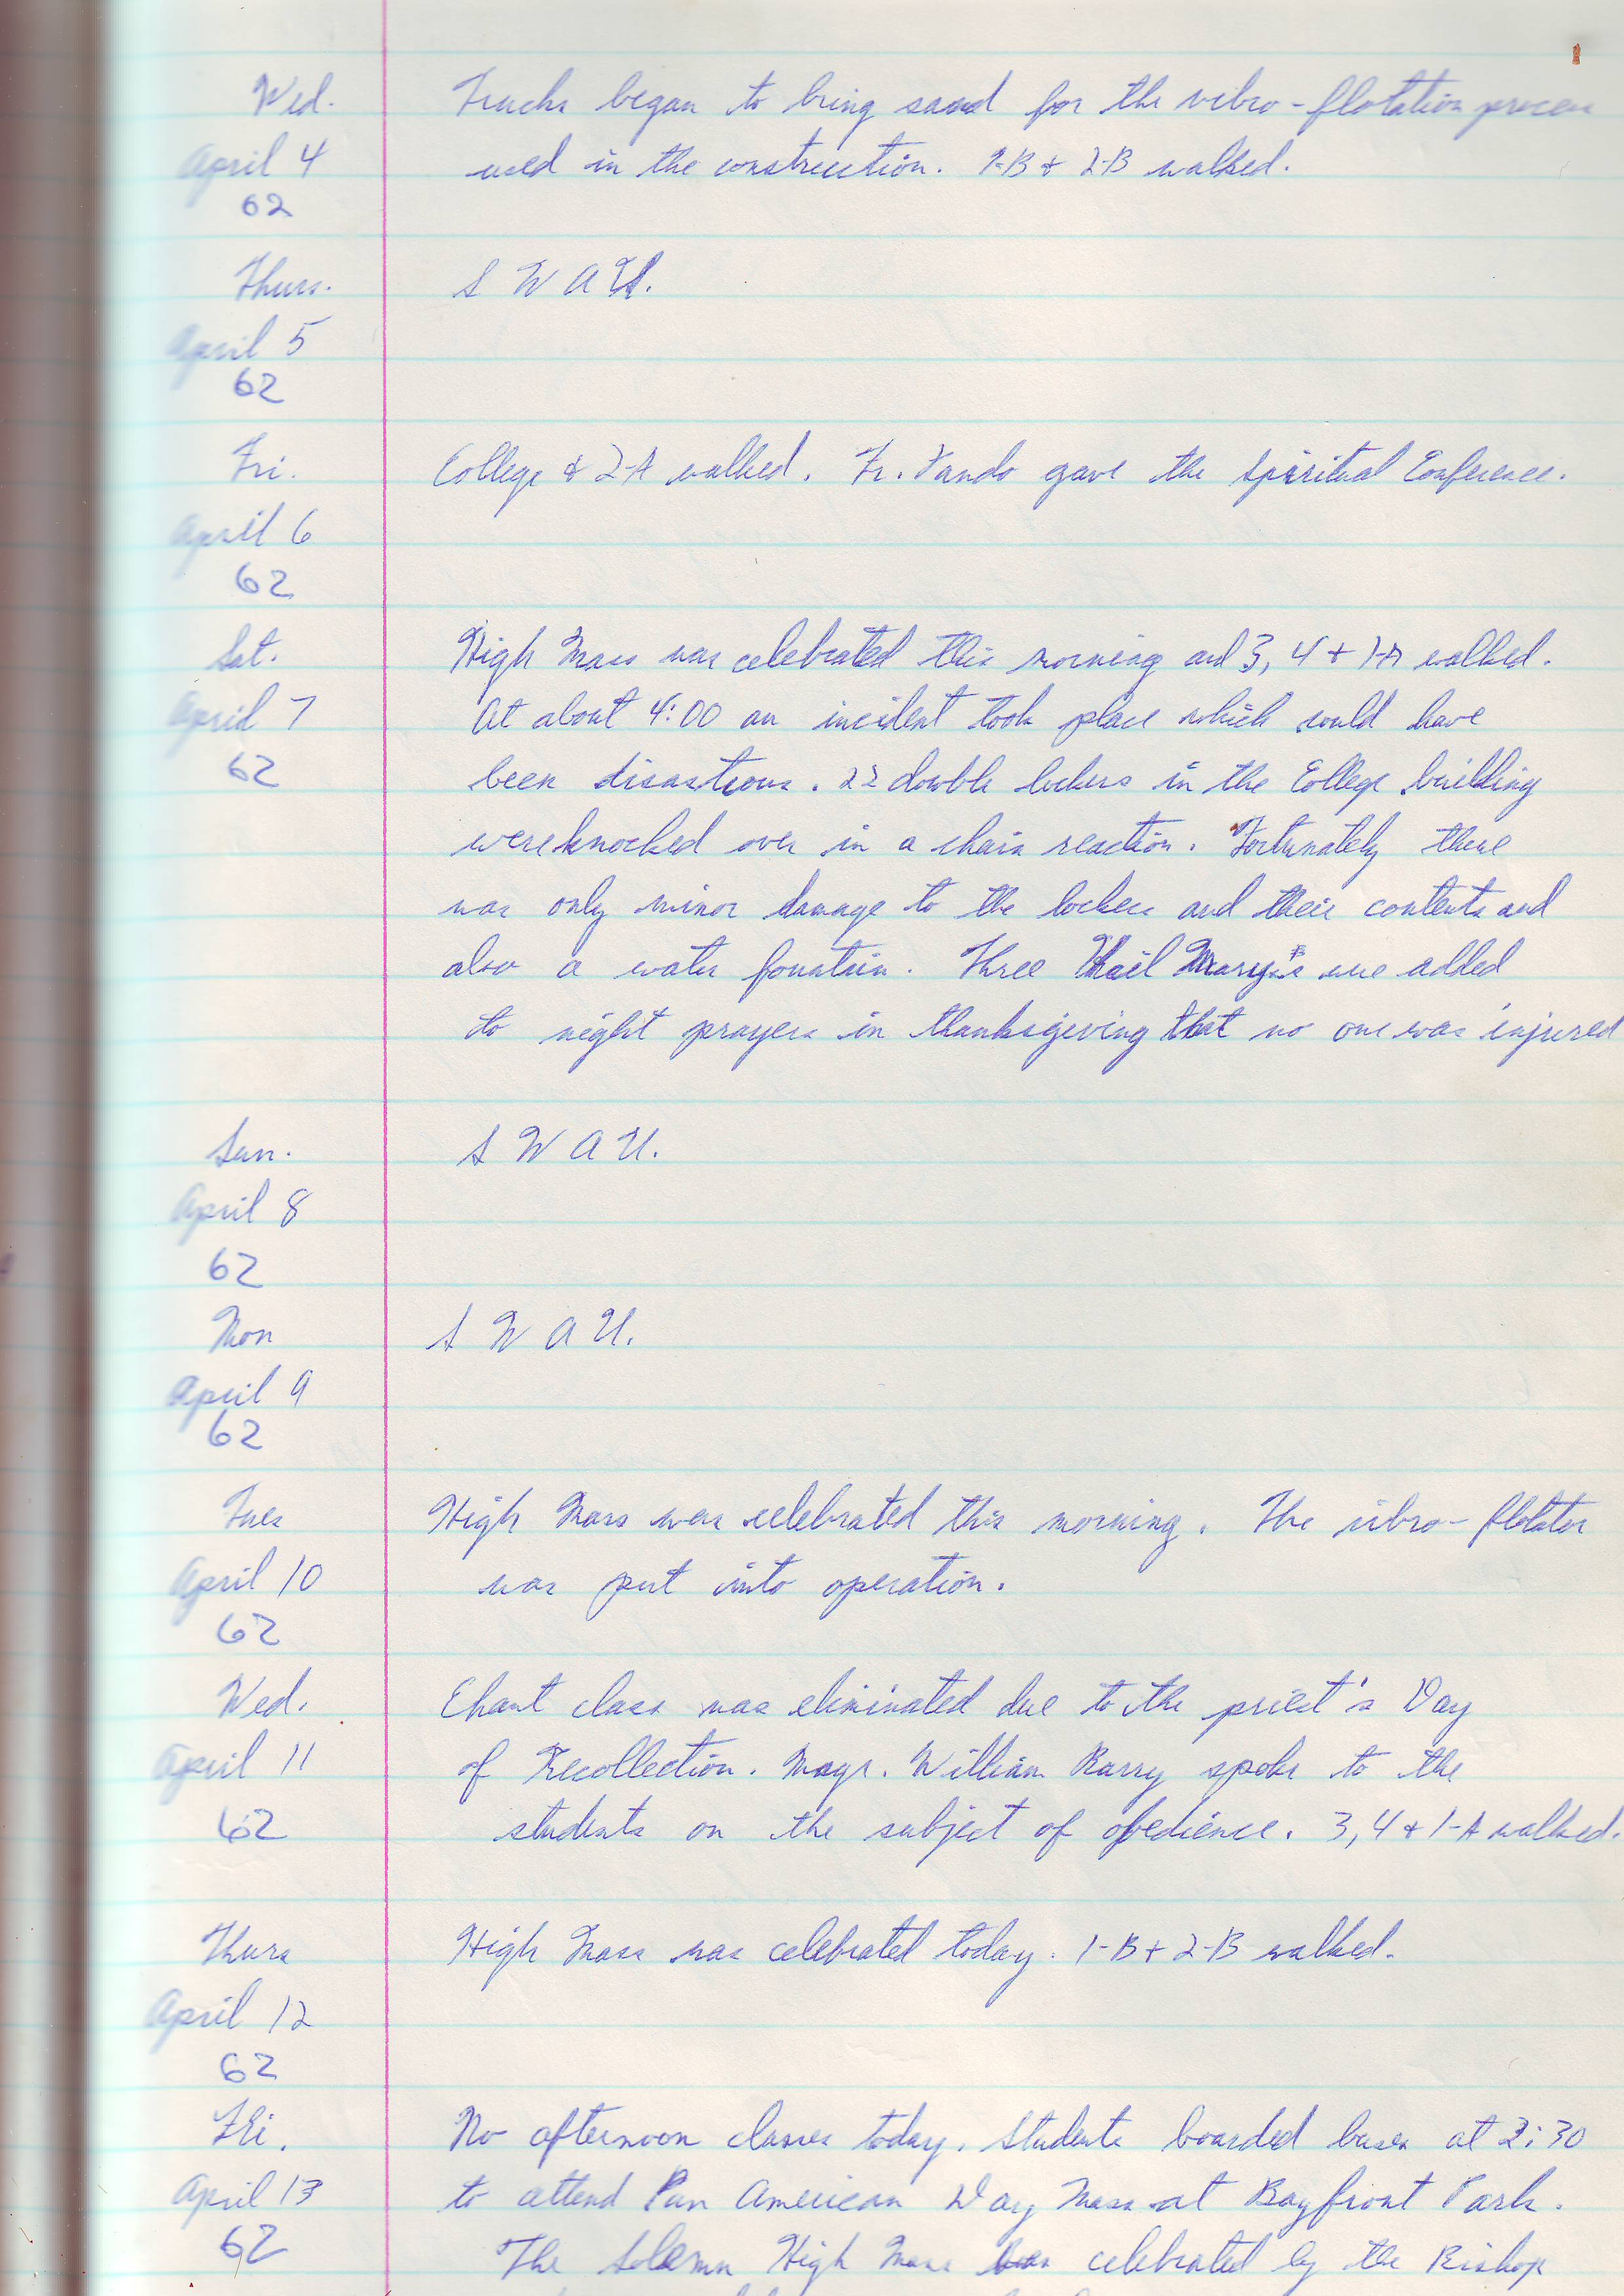 Wed. Trucks began to bring sand for the vibro-flotation process
April 4 used in the construction. 1-B + 2-B walked.
62
Thurs. S W A U.
April 5
62
Fri. College & 2-A walked. Fr. Vando gave the Spiritual Conference.
April 6
62
Sat. High Mass was celebrated this morning and 3, 4 + 1-A walked.
April 7 At about 4:00 an incident took place which could have
62 been disastrous. 22 double lockers in the College building
were knocked over in a chain reaction. Fortunately there
was only minor damage to the lockers and their contents and
also a water fountain. Three Hail Mary's were added
to night prayers in thanksgiving that no one was injured
Sun. S W A U.
April 8
62
Mon S W A U.
April 9
62
Tues High Mass was celebrated this morning. The vibro-flotator
April 10 was put into operation.
62
Wed. Chant class was eliminated due to the priest's Day
April 11 of Recollection. Msgr. William Barry spoke to the
62 students on the subject of obedience. 3, 4 + 1-A walked.
Thurs High Mass was celebrated today. 1-B + 2-B walked.
April 12
62
Fri. No afternoon classes today. Students boarded buses at 2:30
April 13 to attend Pan American Day Mass at Bayfront Park.
62 The Solemn High Mass was celebrated by the Bishop